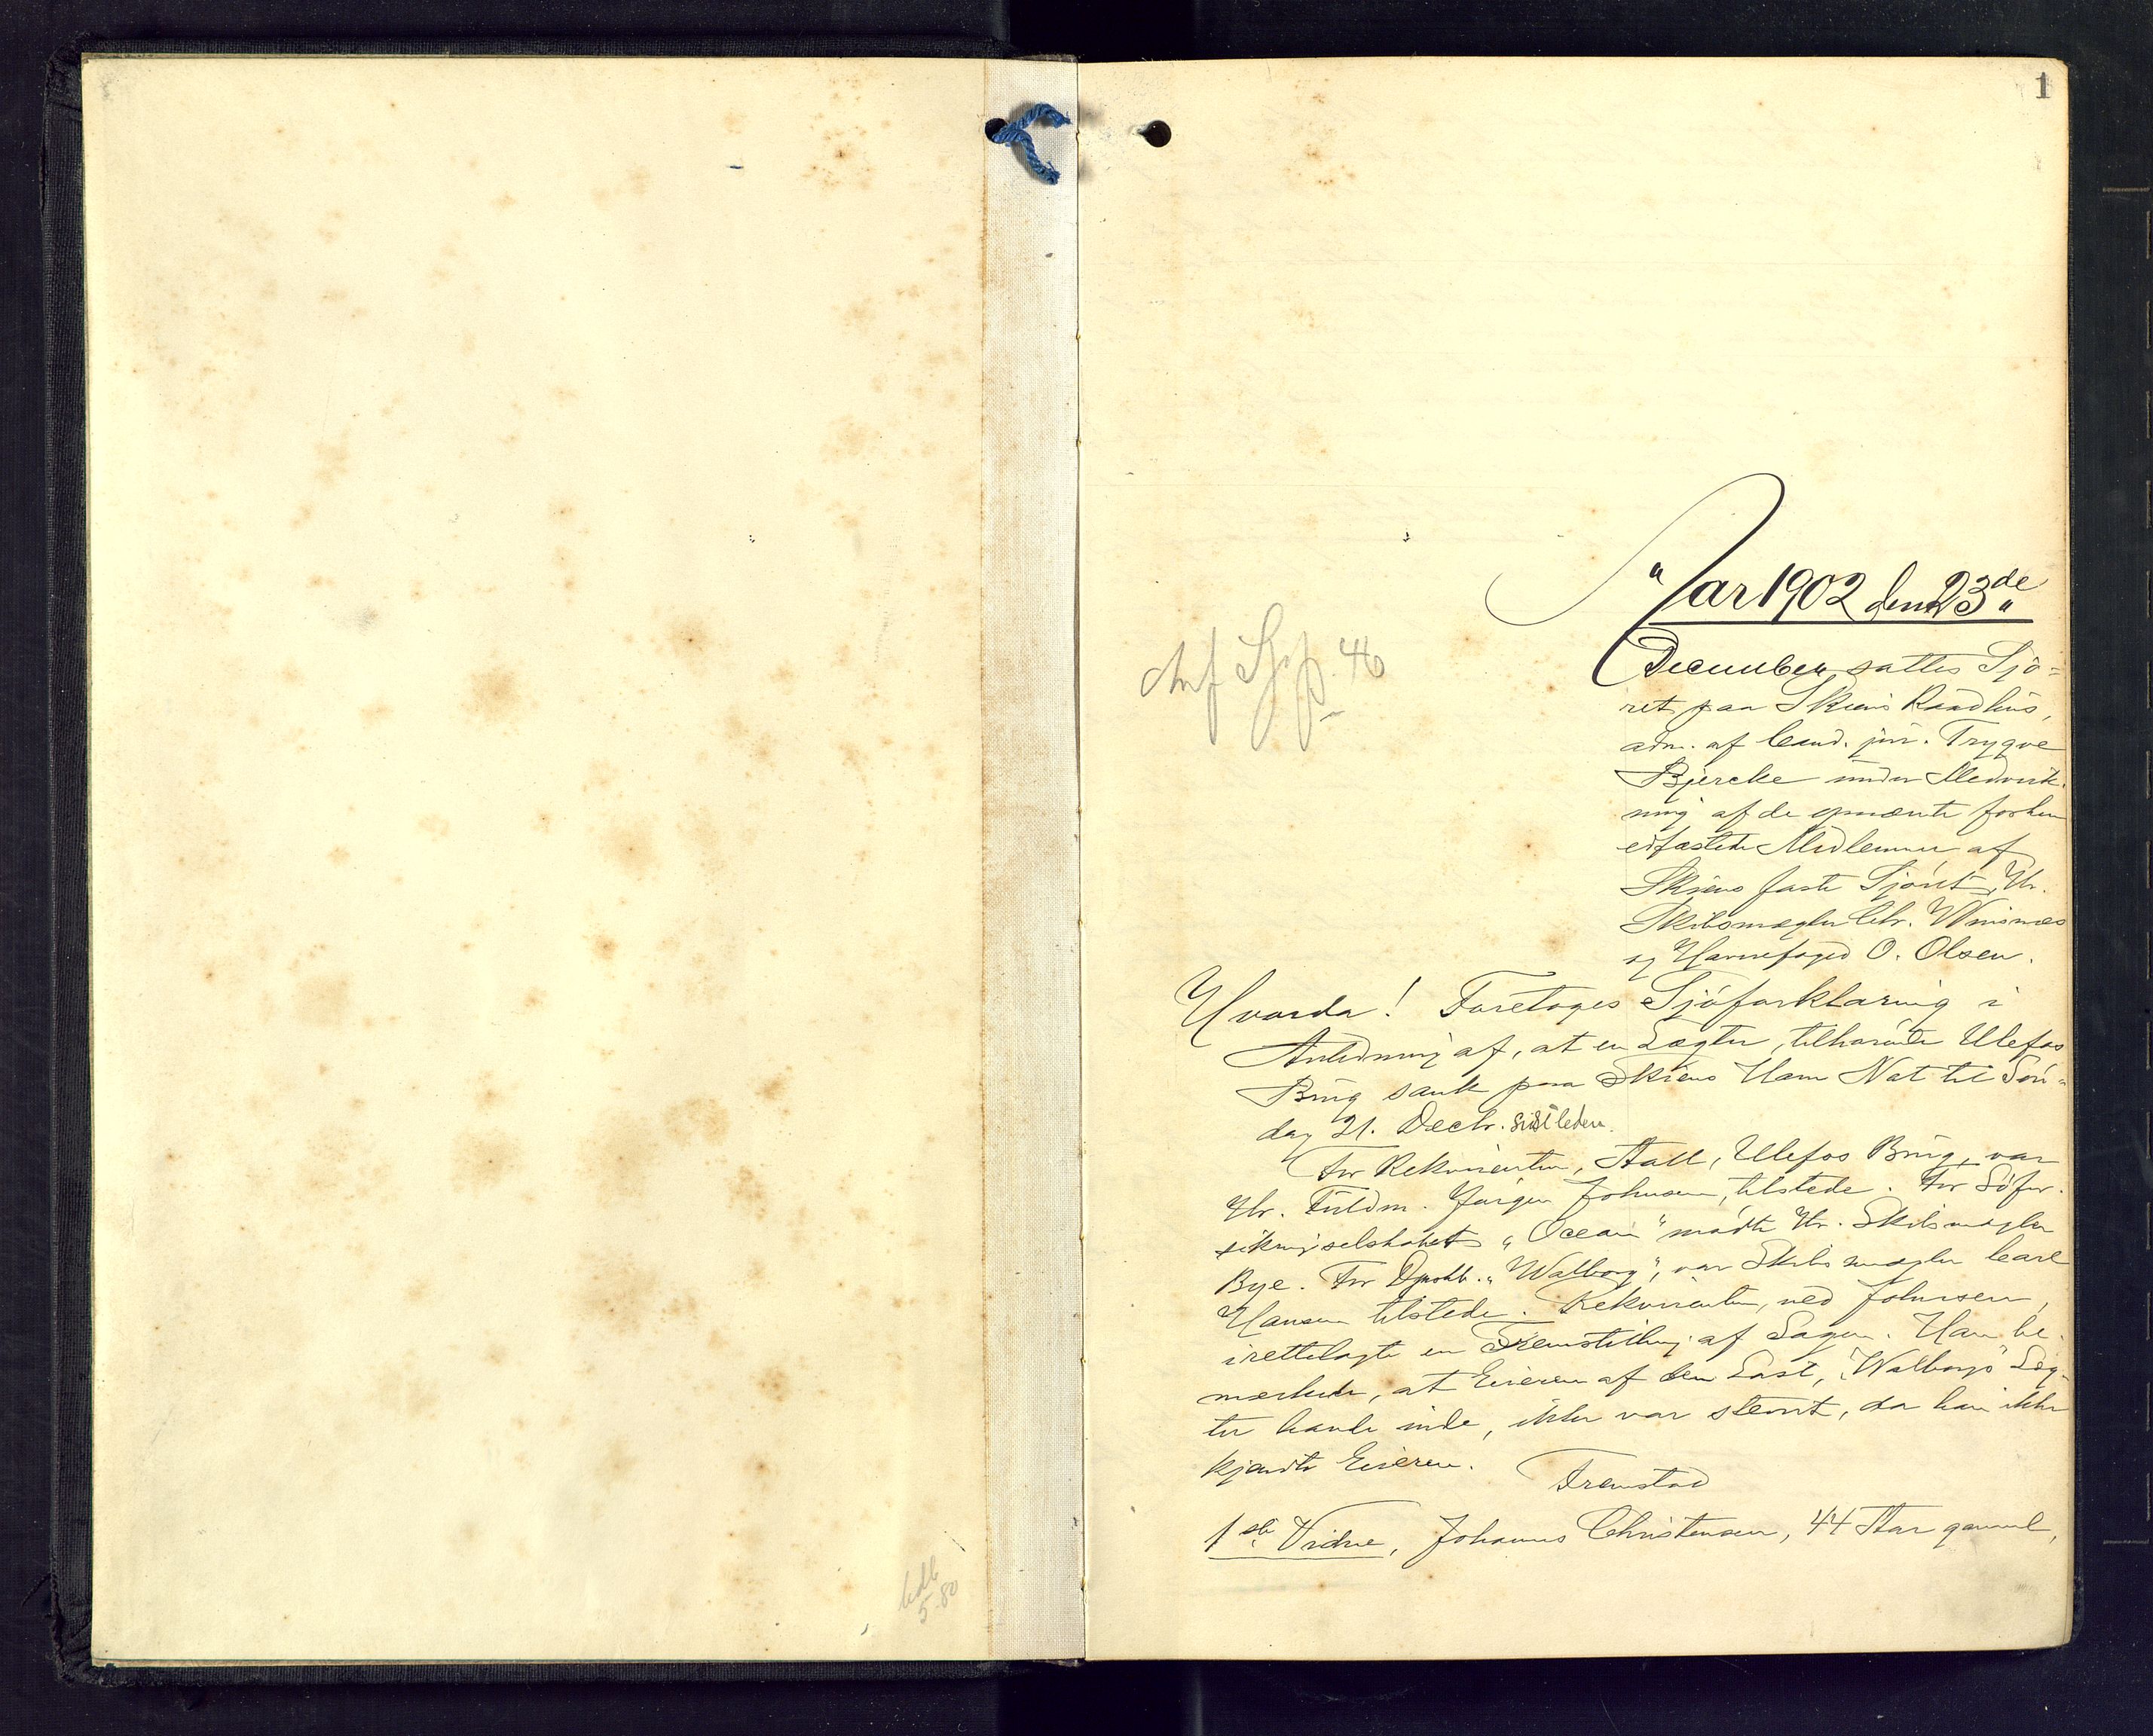 1
Aar 1902 den 23de
December sattes Sjö=
ret paa Skiens Raadhus,
adm. af Cand. jur. Trygve
Bjercke under Medvirk.
ning af de opnævnte forhen
edfæstede Medlemmer af
Skiens faste Sjöret, Hr.
Skibsmægler Chr. Winsnæs
og Havnefoged O. Olsen.
Hvorda! Foretoges Sjöforklaring i
Anledning af, at en Lægter, tilhörende Ulefos
Brug sank paa Skiens Havn Nat til Sön=
dag 21. Decbr. sidstleden.
For Rekvirenten, Aall, Ulefos Brug, var
Hr. Fuldm. Jörgen Johnsen, tilstede. For Söfor.
sikringselskabet „Ocean" mödte Hr. Skibsmægler
Bye. For Dpskb. „Walborg", var Skibsmægler Carl
Hansen tilstede. Rekvirenten, ved Johnsen,
irettelagte en Fremstilling af Sagen. Han be.
mærkede, at Eieren af den Last, „Walborgs" Læg-
ter havde inde, ikke var stevnt, da han ikke
kjendte Eieren.
Fremstod
1ste Vidne, Johannes Christensen, 44 Aar gammel,
p. 46
5-80